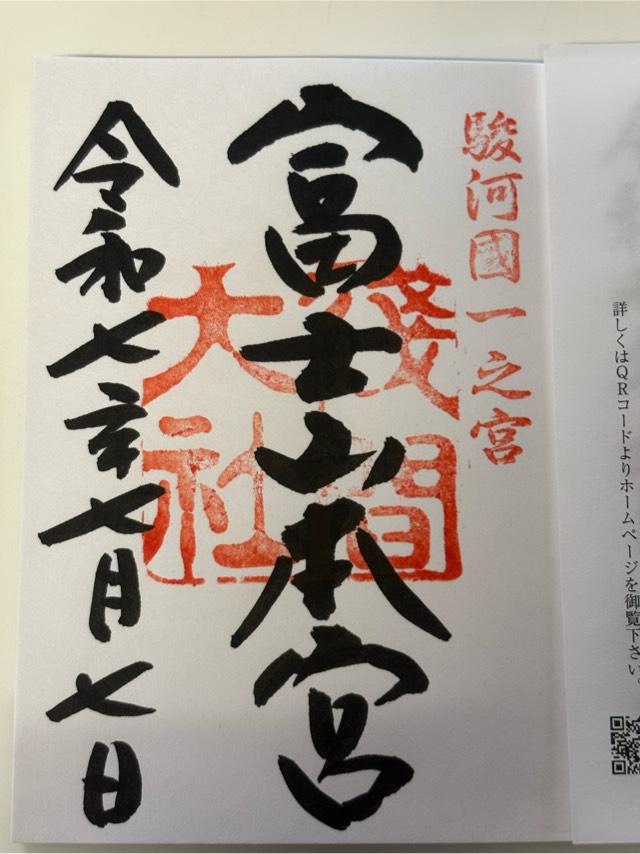 詳しくはQRコードよりホームページを御覧下さい。
駿河國一之宮
富士山本宮
淺間
大社
令和七年七月七日